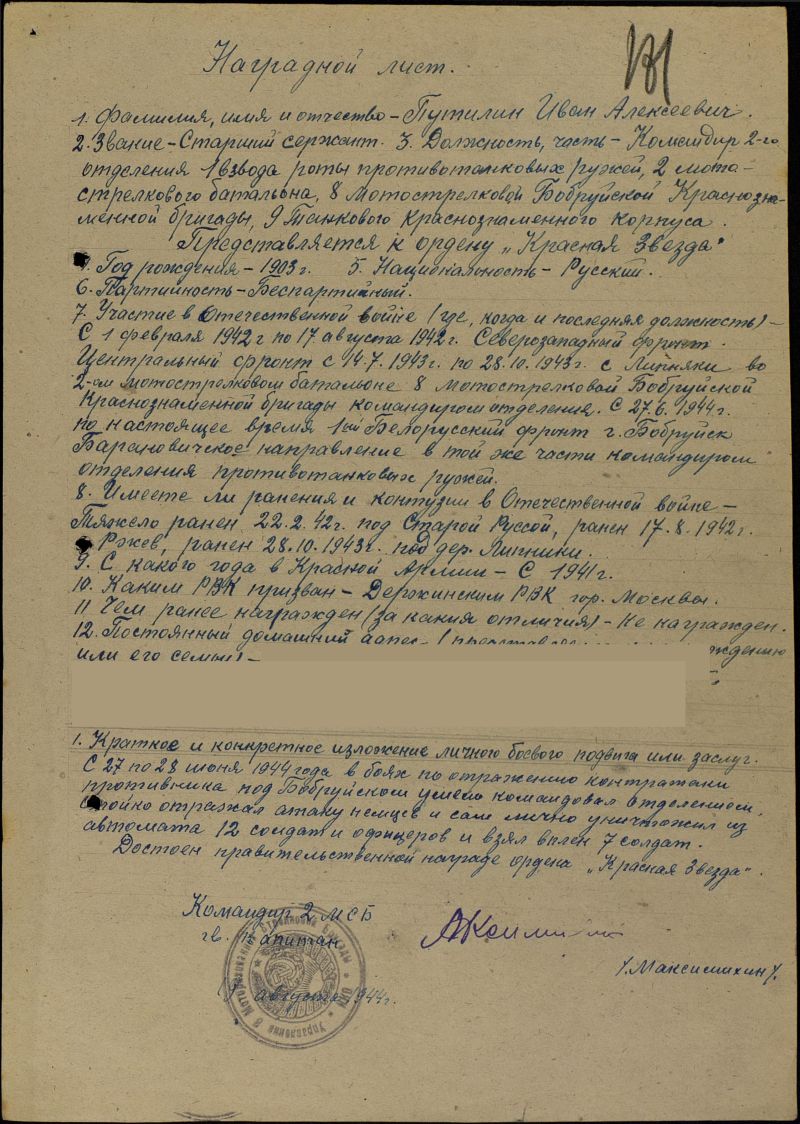 Наградной лист.
1. Фамилия, имя и отчество – Путилин Иван Алексеевич.
2. Звание – Старший сержант. 3. Должность, часть – Командир 2-го
отделения 1 взвода роты противотанковых ружей, 2 мото-
стрелкового батальона, 8 Мотострелковой Бобруйской Краснозна-
менной бригады, 9 Танкового краснознаменного корпуса.
Представляется к ордену „Красная Звезда"
4. Год рождения – 1903 г. 5. Национальность – Русский.
6. Партийность – Беспартийный.
7. Участие в Отечественной войне (где, когда и последняя должность) –
С 1 февраля 1942 г по 17 августа 1942 г. Северозападный фронт.
Центральный фронт с 14.7.1943г. по 28.10.1943г. с Липняки во
2-ом мотострелковом батальоне 8 мотострелковой Бобруйской
Краснознаменной бригады командиром отделения. С 27.6.1944г.
по настоящее время 1ый Белорусский фронт г. Бобруйск
Барановичское направление в той же части командиром
отделения противотанковых ружей.
8. Имеете ли ранения и контузии в Отечественной войне –
Тяжело ранен 22.2.42г. под Старой Руссой, ранен 17.8.1942г.
Ржев, ранен 28.10.1943г. под дер. Липники.
9. С какого года в Красной Армии – С 1941г.
10. Каким РВК призван – Держинским РВК гор. Москвы.
11 Чем ранее награжден (за какия отличия) – Не награжден.
12. Постоянный домашний адрес – (
ждению
или его семьи) –
1. Краткое и конкретное изложение личного боевого подвига или заслуг.
С 27 по 28 июня 1944 года в боях по отражению контратаки
противника под Бобруйском умело командовал отделением,
стойко отражал атаку немцев и сам лично уничтожил из
автомата 12 солдат и офицеров и взял в плен 7 солдат.
Достоен правительственной награде ордена „Красная Звезда".
Командир 2 МСБ
гв. Капитан
/Максимихин/.
августа 1944г.